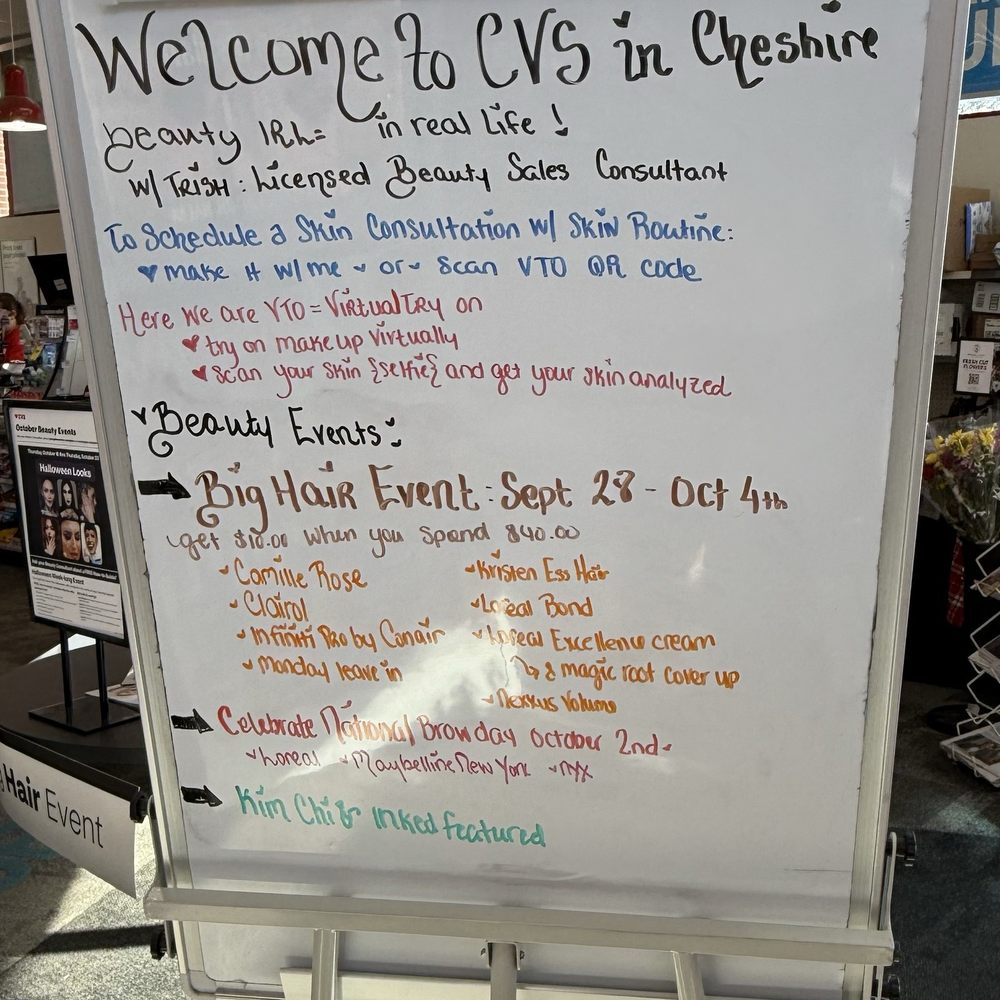 Welcome to CVS in Cheshire
Beauty IRL = in real Life !
w/ TRISH : Licensed Beauty Sales Consultant
To Schedule a Skin Consultation w/ SKIN Routine:
♥ make it w/ me ~ or ~ scan VTO QR code
Here we are VTO = Virtual Try on
♥ try on makeup virtually
♥ Scan your skin {selfie} and get your skin analyzed
Beauty Events:
Big Hair Event : Sept 28 - Oct 4th
get $10.00 when you spend $40.00
Camille Rose
Clairol
Infiniti Pro by Conair
Monday leave in
Kristen Ess Hair
Loreal Bond
Loreal Excellence cream
& magic root cover up
Nexxus Volume
Celebrate National Brow day October 2nd
Loreal Maybelline New York nyx
Kim Chi & Inked featured
October Beauty Events
Halloween Looks
Hair Event